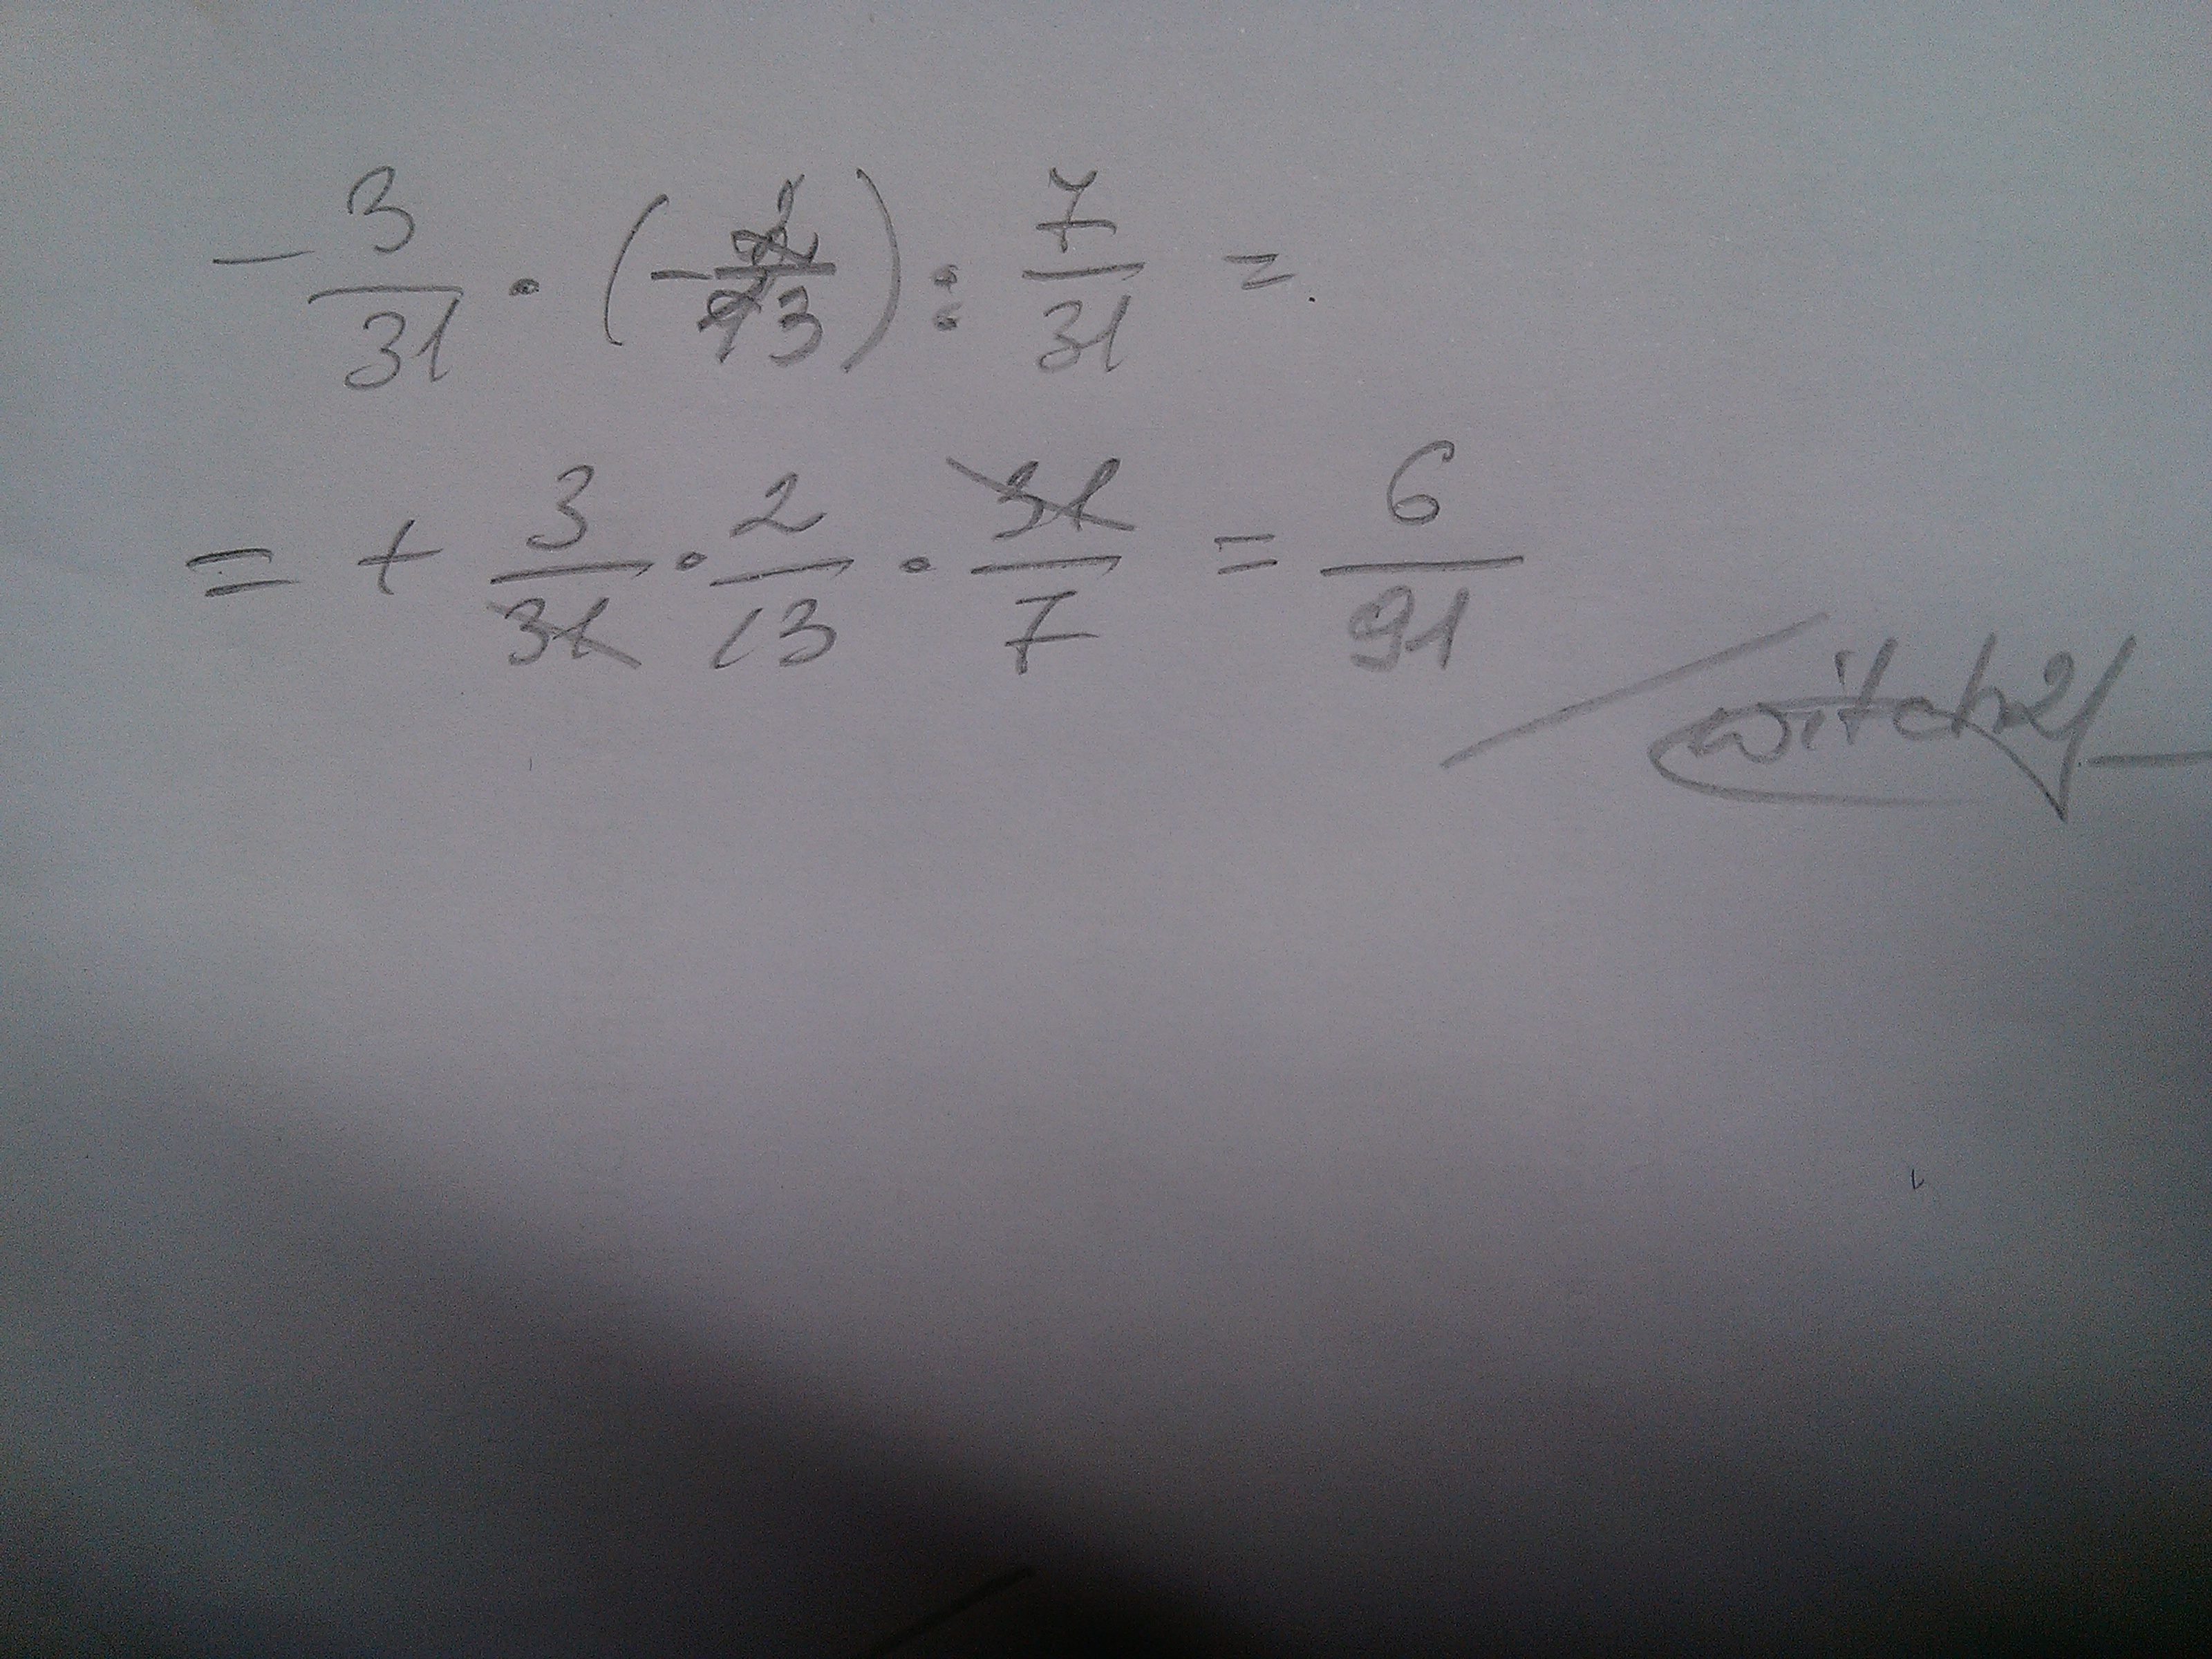 - 3/31 · (- 2/13) : 7/31 =
= + 3/31 · 2/13 · 31/7 = 6/91
witchy